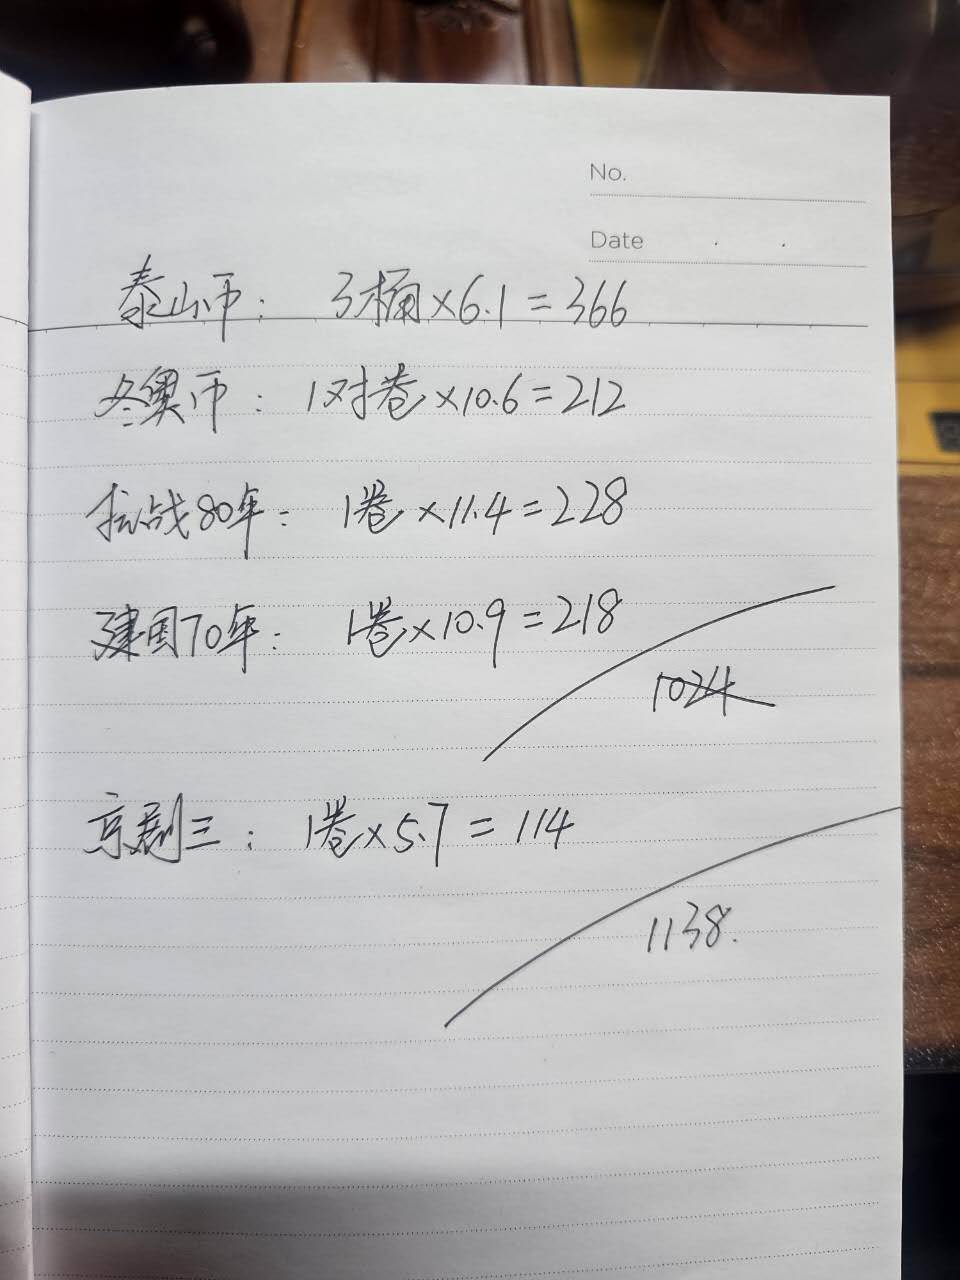 No.
Date . .
泰山币： 3桶×6.1=366
冬奥币： 1对卷×10.6=212
抗战80年： 1卷×11.4=228
建国70年： 1卷×10.9=218
1024
京剧三： 1卷×5.7=114
1138.